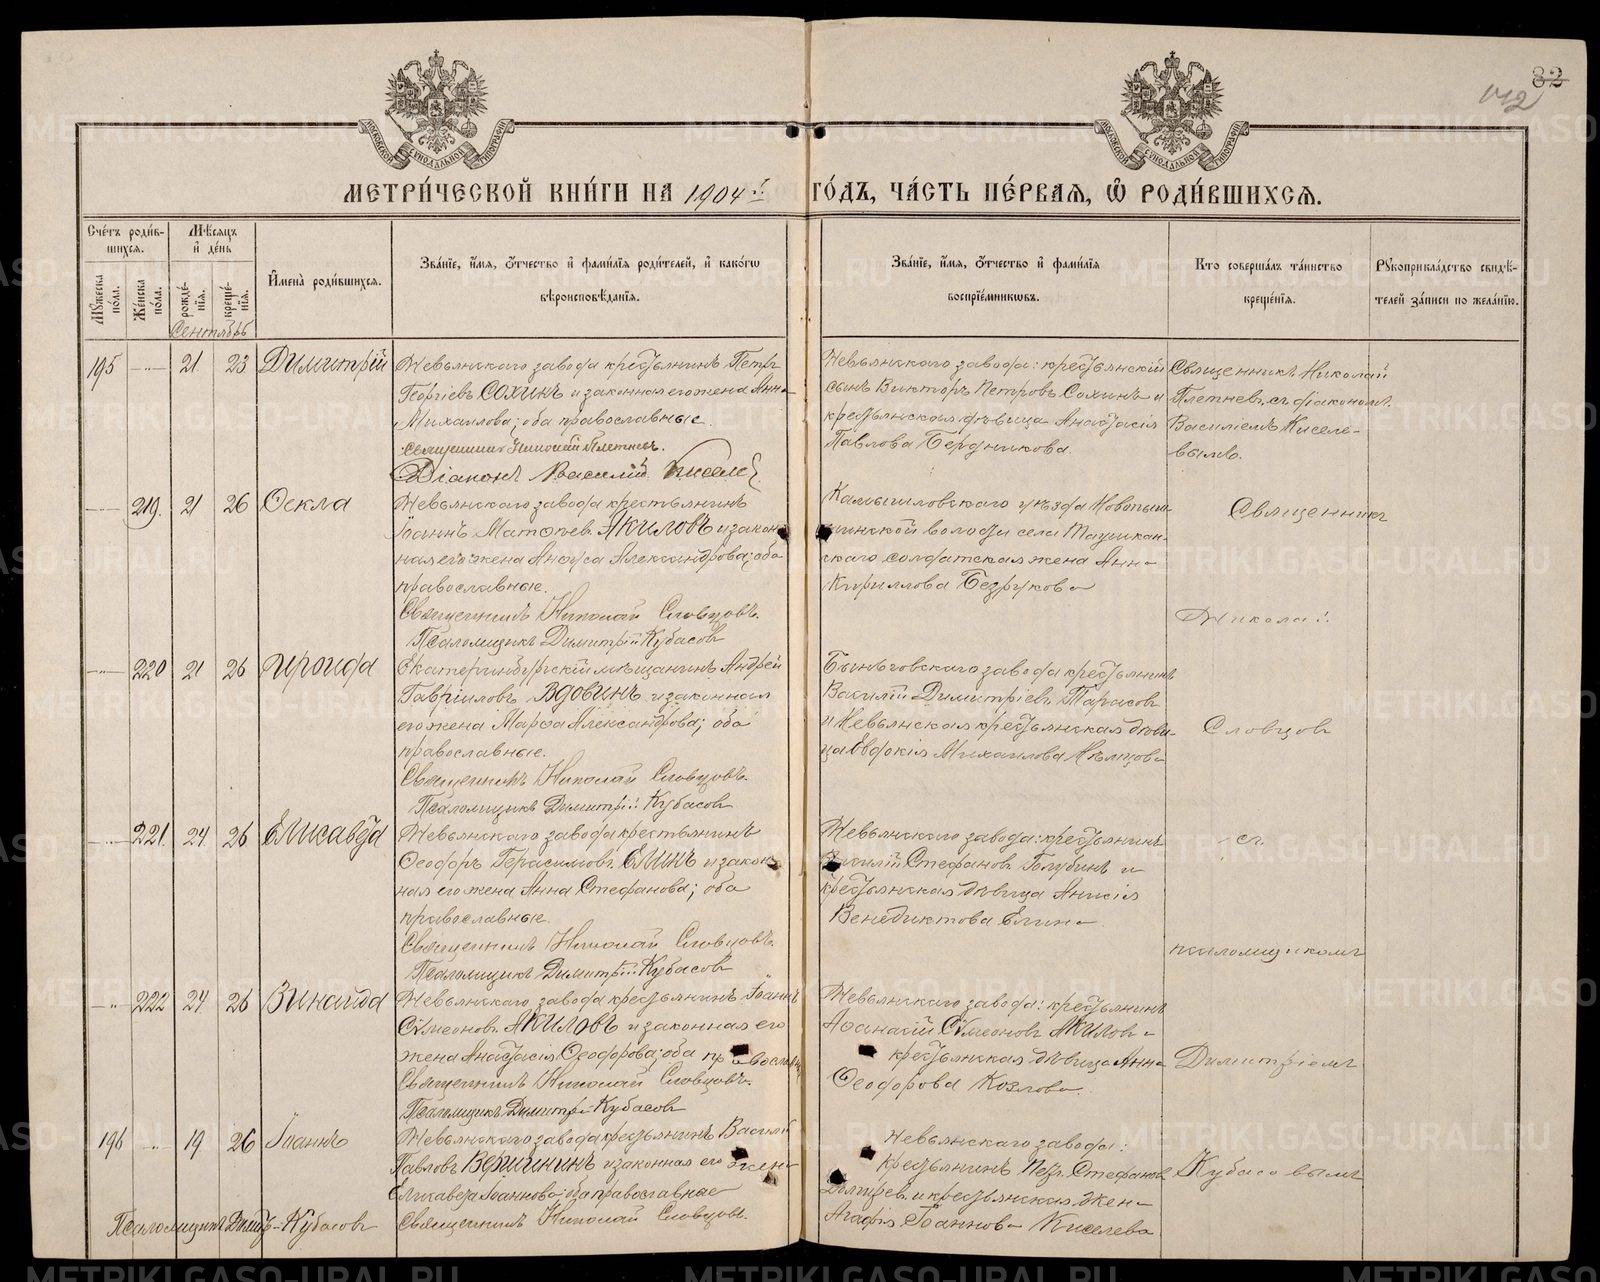 82
142
МОСКОВСКОЙ СѴНОДАЛЬНОЙ ТИПОГРАФІИ
МОСКОВСКОЙ СѴНОДАЛЬНОЙ ТИПОГРАФІИ
МЕТРИ́ЧЕСКОЙ КНИ́ГИ НА 1904 г. ГО́ДЪ, ЧА́СТЬ ПЕ́РВАЯ, Ѡ҆ РОДИ́ВШИХСЯ.
Сче́тъ роди́в-
шихся.
Мꙋжеска по́ла.
Же́нска по́ла.
Мѣ́сяцъ и҆ де́нь
рожде́-
нїя.
креще́-
нїя.
И҆мена̀ роди́вшихся.
Зва́нїе, и҆́мя, ѻ҆́тчество и҆ фами́лїя роди́телей, и҆ како́гѡ
вѣроисповѣ́данїя.
Зва́нїе, и҆́мя, ѻ҆́тчество и҆ фами́лїя
воспрїе́мникѡвъ.
Кто̀ соверша́лъ та́инство
креще́нїя.
Рꙋкоприкла́дство свидѣ́-
телей за́писи по жела́нїю.
Сентябрь
195 21 23 Димитрій
Невьянскаго завода крестьянинъ Петръ
Георгіевъ Сохинъ и законная его жена Анна
Михаилова; оба православные.
Священникъ Николай Плетневъ.
Діаконъ Василій Киселев
Невьянскаго завода: крестьянскій
сынъ Викторъ Петровъ Сохинъ и
крестьянская дѣвица Анастасія
Павлова Бердникова.
Священникъ Николай
Плетневъ съ діакономъ
Василіемъ Киселе-
вымъ.
219. 21 26 Ѳекла
Невьянскаго завода крестьянинъ
Іоаннъ Матѳіевъ Акиловъ и закон-
ная его жена Анѳуса Александрова; оба
православные.
Священникъ Николай Словцовъ.
Псаломщикъ Димитрій Кубасовъ
Камышловскаго уѣзда Новопыш-
минской волости села Таушкан-
скаго солдатская жена Анна
Кириллова Безрукова
Священникъ
Николай
220 21 26 Ираида
Екатеринбургскій мѣщанинъ Андрей
Гавріиловъ Вдовинъ и законная
его жена Марѳа Александрова; оба
православные.
Священникъ Николай Словцовъ.
Псаломщикъ Димитрій Кубасовъ
Быньговскаго завода крестьянинъ
Василій Димитріевъ Тарасовъ
и Невьянская крестьянская дѣви-
ца Евдокія Михаилова Нѣмцова
Словцовъ
221. 24 26 Елисавета
Невьянскаго завода крестьянинъ
Ѳеодоръ Герасимовъ Елинъ и закон-
ная его жена Анна Стефанова; оба
православные.
Священникъ Николай Словцовъ.
Псаломщикъ Димитрій Кубасовъ
Невьянскаго завода: крестьянинъ
Василій Стефановъ Голубинъ и
крестьянская дѣвица Анисія
Венедиктова Елина
съ
псаломщикомъ
222 24 26 Зинаида
Невьянскаго завода крестьянинъ Іоаннъ
Сѵмеоновъ Акиловъ и законная его
жена Анастасія Ѳеодорова; оба православны
Священникъ Николай Словцовъ.
Псаломщикъ Димитрій Кубасовъ
Невьянскаго завода: крестьянинъ
Аѳанасій Сѵмеоновъ Акиловъ и
крестьянская дѣвица Анна
Ѳеодорова Козлова.
Димитріемъ
196 19 26 Іоаннъ
Невьянскаго завода крестьянинъ Василій
Павловъ Вершининъ и законная его жена
Елисавета Іоаннова; оба православные
Священникъ Николай Словцовъ.
Псаломщикъ Димитр. Кубасовъ
Невьянскаго завода:
крестьянинъ Петръ Стефановъ
и крестьянская жена
Агафія Іоаннова Киселева
Кубасовымъ
METRIKI.GASO-URAL.RU